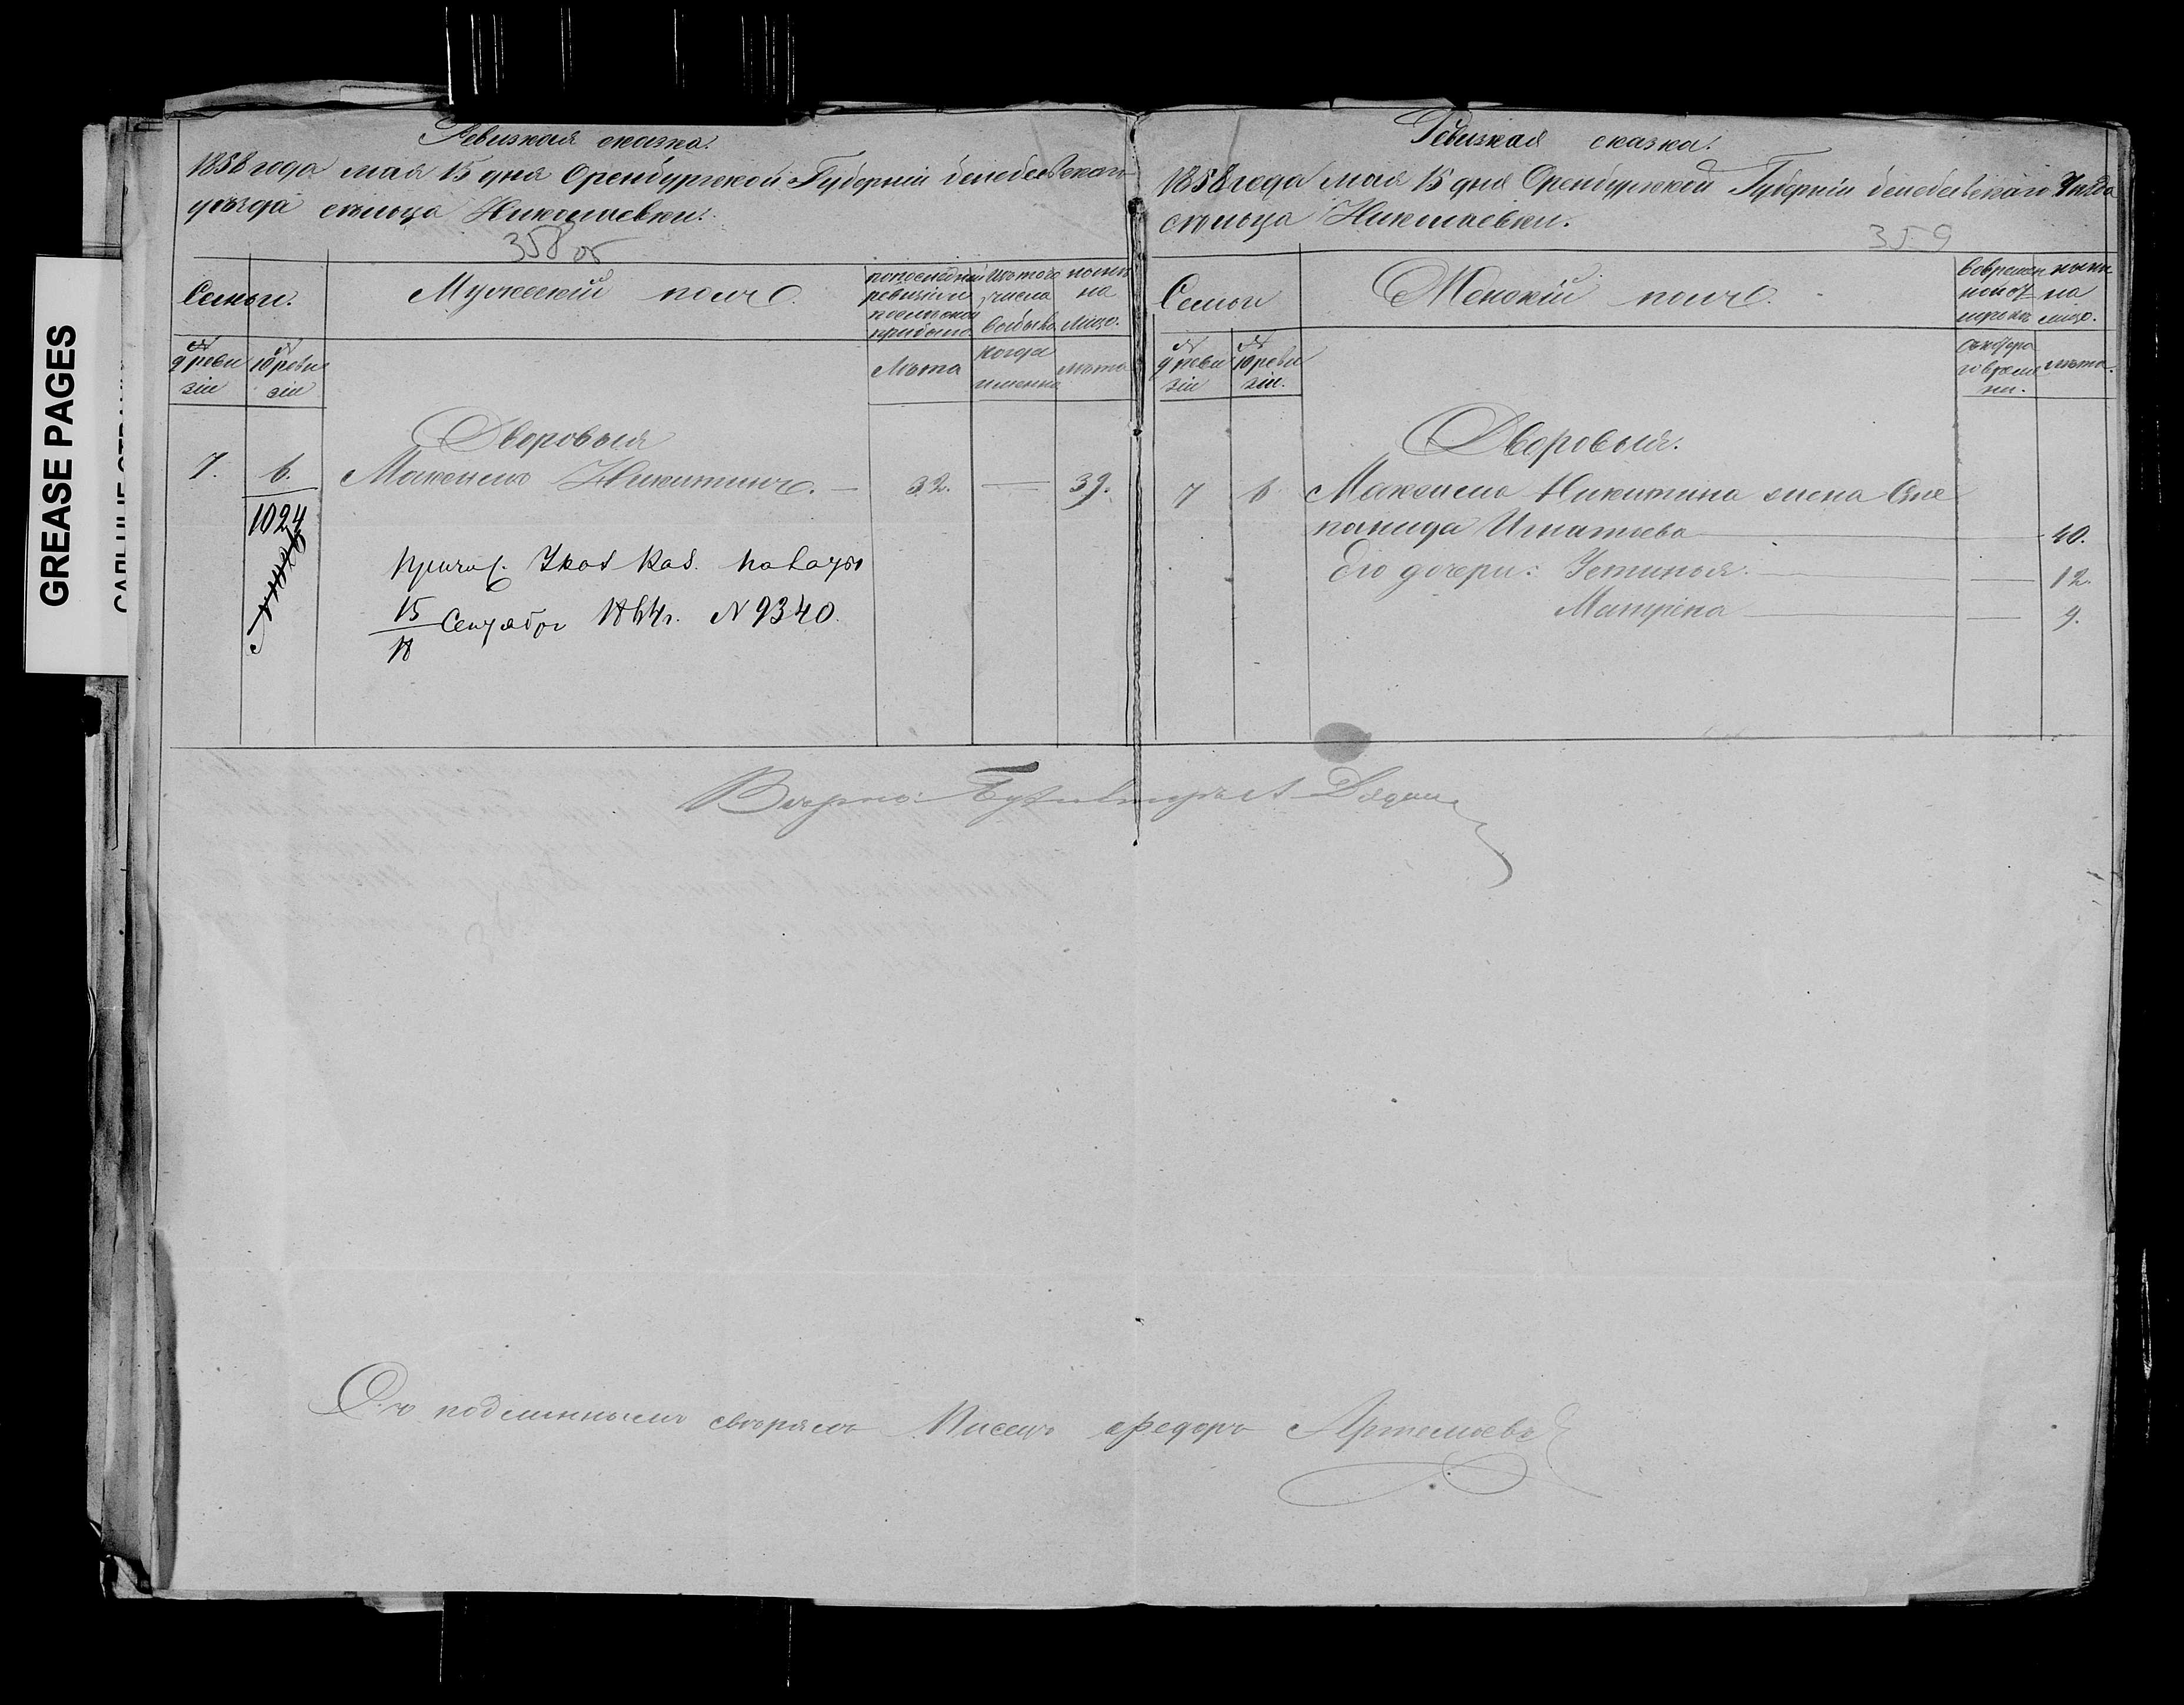 GREASE PAGES
Ревизкая сказка.
1858 года мая 15 дня Оренбургской Губерніи Белебеевскаго
уѣзда сѣльца Николаевки.
358 об
Семьи.
Мужескій полъ
по последней ревизіи и после оной прибыло
Изъ того числа выбыло
ныне на лицо.
№ 9 реви зіи
№ 10 реви зіи
Лѣта
когда именно
лѣта
Дворовыя
7. 6. Максимъ Никитинъ. — 32. — 39.
1024
Причис. Указ Каз. Палаты
15/18 Сентября 1864 г. N 9340.
Ревизкая сказка.
1858 года Мая 15 дня Оренбургской Губерніи Белебеевскаго Уезда
сѣльца Николаевки.
359
Семьи
Женскій полъ.
Во времен ной от лучке
ныне на лицо.
№ 9 реви зіи
№ 10 реви зіи.
съ котора го време ни.
лѣта.
Дворовыя.
7 6 Максима Никитина жена Сте
панида Игнатьева 40.
Его дочери: Устинья. — 12.
Матрена — 9.
Верно: Бухгалтеръ
Съ подлиннымъ сверялъ Писецъ Федоръ Артемьевъ